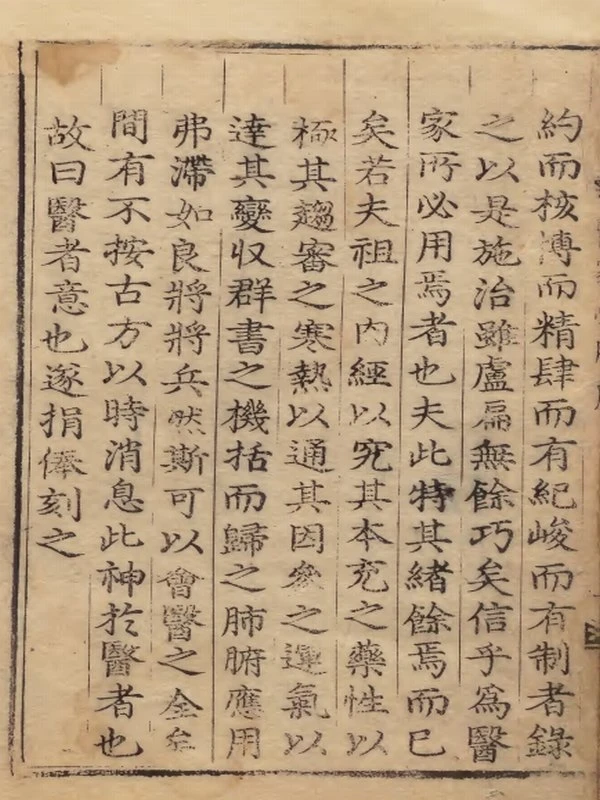 約而核博而精肆而有紀峻而有制者錄
之以是施治雖盧扁無餘巧矣信乎為醫
家所必用焉者也夫此特其緒餘焉而已
矣若夫祖之内經以究其本充之藥性以
極其趨審之寒熱以通其因參之運氣以
達其變収群書之機括而歸之肺腑應用
弗滯如良將將兵然斯可以會醫之全矣
間有不按古方以時消息此神於醫者也
故曰醫者意也遂捐俸刻之